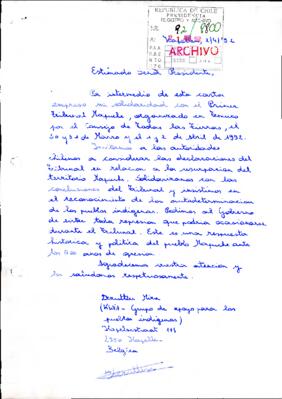 REPUBLICA DE CHILE
PRESIDENCIA
REGISTRO Y ARCHIVO
NR. 92/ 9800
A: 
P.A.A.
ARCHIVO
Hasselt, 2/4/92
Estimado señor Presidente,
Por intermedio de esta carta
expreso mi solidaridad con el Primer
Tribunal Mapuche, organizado en Temuco
por el Consejo de Todas las Tierras, el
30 y 31 de Marzo y el 1 y 2 de Abril de 1992.
Invitamos a las autoridades
chilenas a considerar las declaraciones del
Tribunal en relacion a la usurpacion del
territorio Mapuche. Solidarizamos con las
conclusiones del Tribunal y insistimos en
el reconocimiento de la autodeterminacion
de los pueblos indigenas. Pedimos al Gobierno
de evitar toda represion que podria ocasionarse
durante el Tribunal. Este es una respuesta
historica y politica del pueblo Mapuche ante
los 500 años de agresion.
Agradecemos vuestra atencion y
le saludamos respetuosamente.
(KWIA - Grupo de apoyo para los
pueblos indigenas)
3500 Hasselt
Belgica